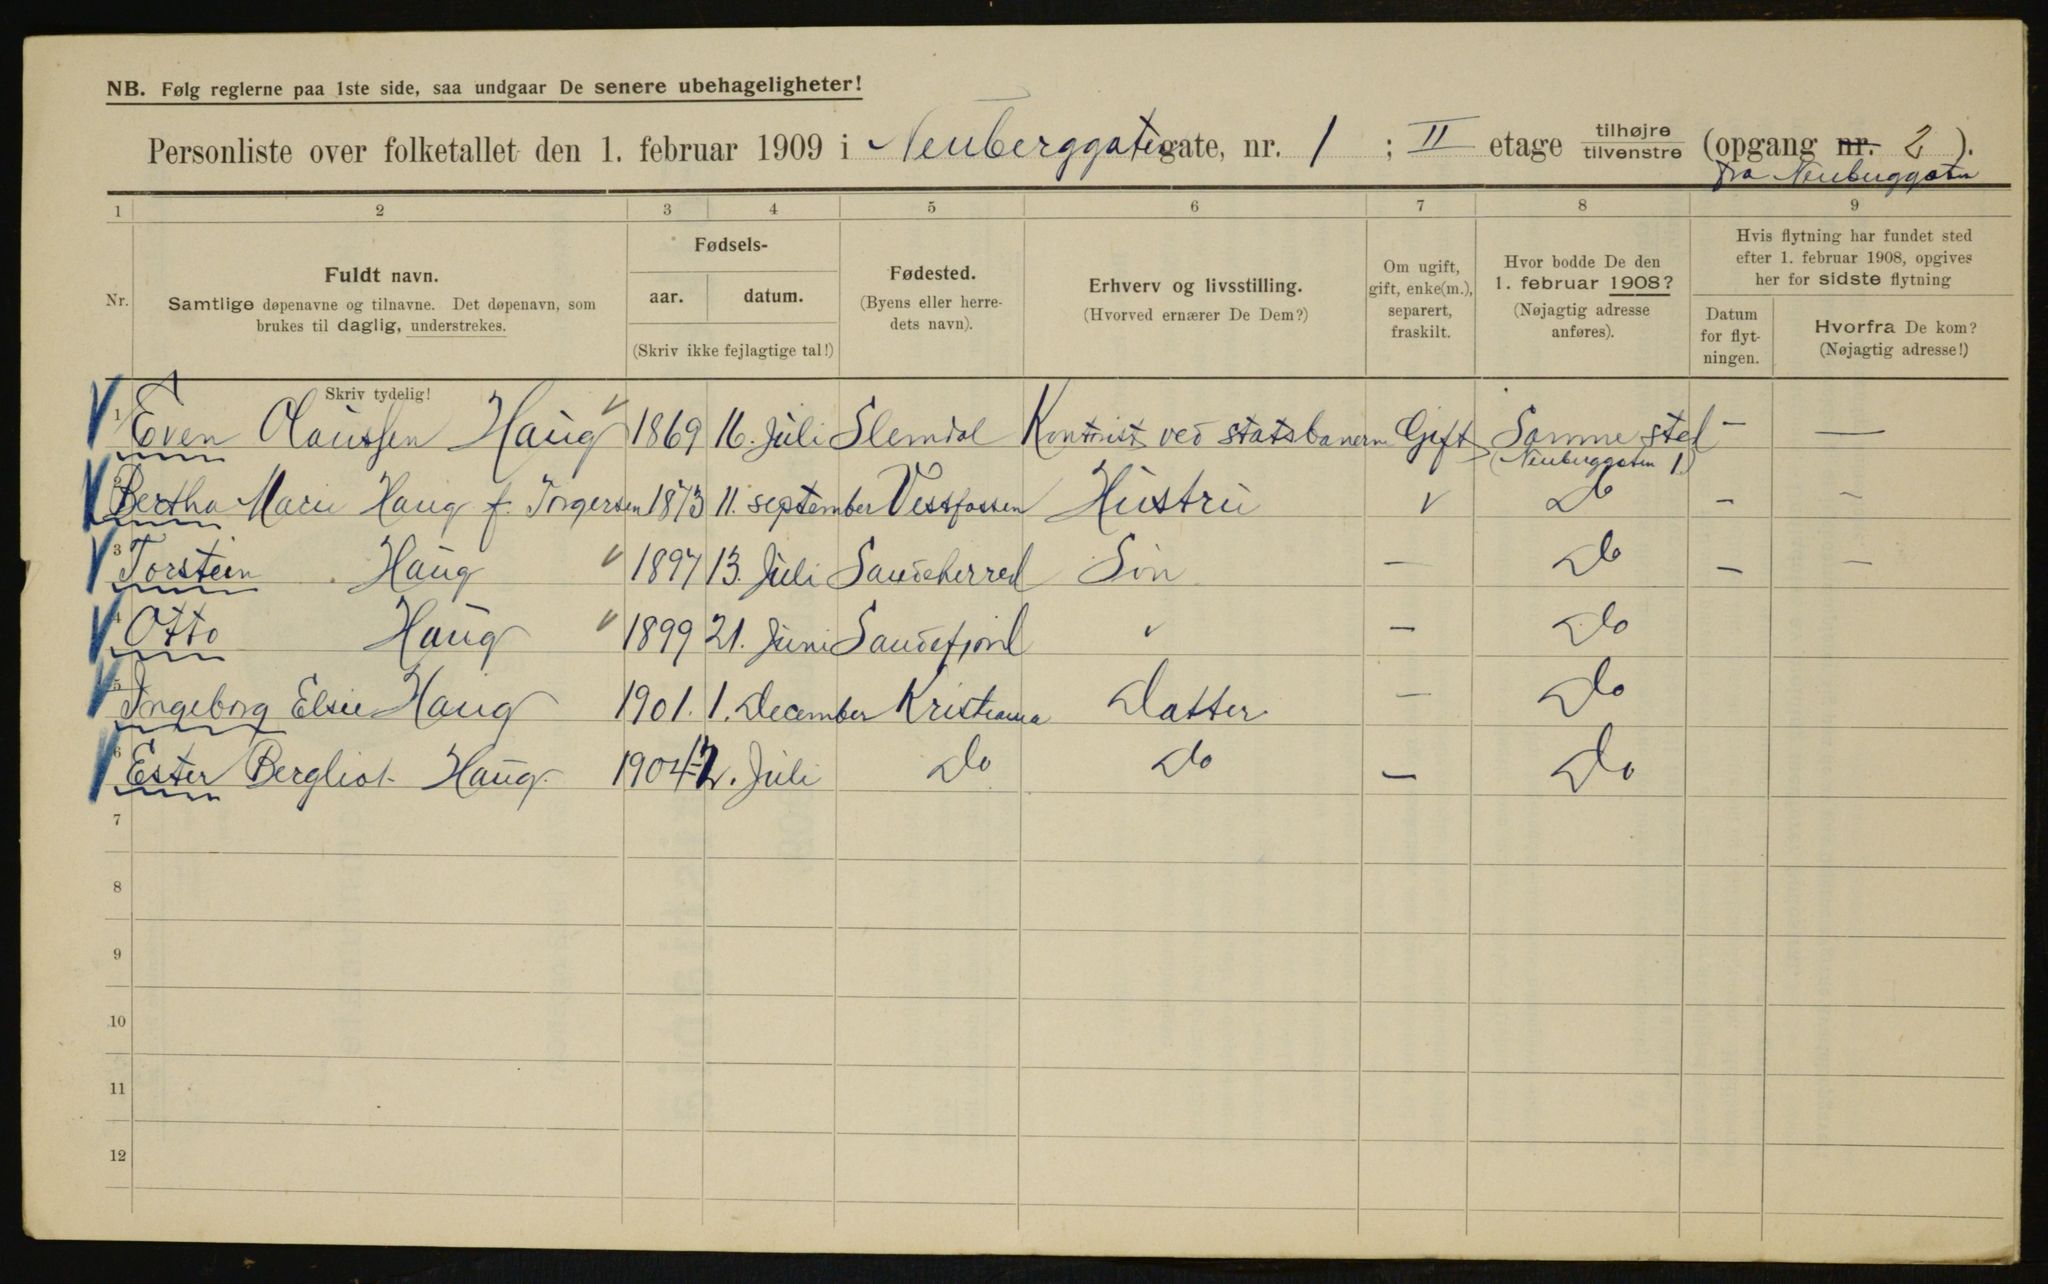 NB. Følg reglerne paa 1ste side, saa undgaar De senere ubehageligheter!
Personliste over folketallet den 1. februar 1909 i Neuberggatengate, nr. 1 ; II etage tilhøjre tilvenstre (opgang nr. 2 ).
fra Neuberggaten
1 2 3 4 5 6 7 8 9
Nr.
Fuldt navn.
Samtlige døpenavne og tilnavne. Det døpenavn, som
brukes til daglig, understrekes.
Fødsels-
aar. datum.
(Skriv ikke fejlagtige tal!)
Fødested.
(Byens eller herre-
dets navn).
Erhverv og livsstilling.
(Hvorved ernærer De Dem?)
Om ugift,
gift, enke(m.),
separert,
fraskilt.
Hvor bodde De den
1. februar 1908?
(Nøjagtig adresse
anføres).
Hvis flytning har fundet sted
efter 1. februar 1908, opgives
her for sidste flytning
Datum
for flyt-
ningen.
Hvorfra De kom?
(Nøjagtig adresse!)
Skriv tydelig!
1 Even Claussen Haug 1869 16. Juli Slemdal Kontorist ved statsbanerne Gift Samme sted — —
(Neuberggaten 1.)
2 Bertha Marie Haug f. Torgersen 1873 11. september Vestfossen Hustru v Do — —
3 Torstein Haug 1897 13. Juli Sandeherred Søn — Do — —
4 Otto Haug 1899 21. Juni Sandefjord " — Do
5 Ingeborg Elsie Haug 1901. 1. December Kristiania Datter — Do
6 Ester Bergliot Haug. 1904 12. Juli Do Do — Do
7
8
9
10
11
12